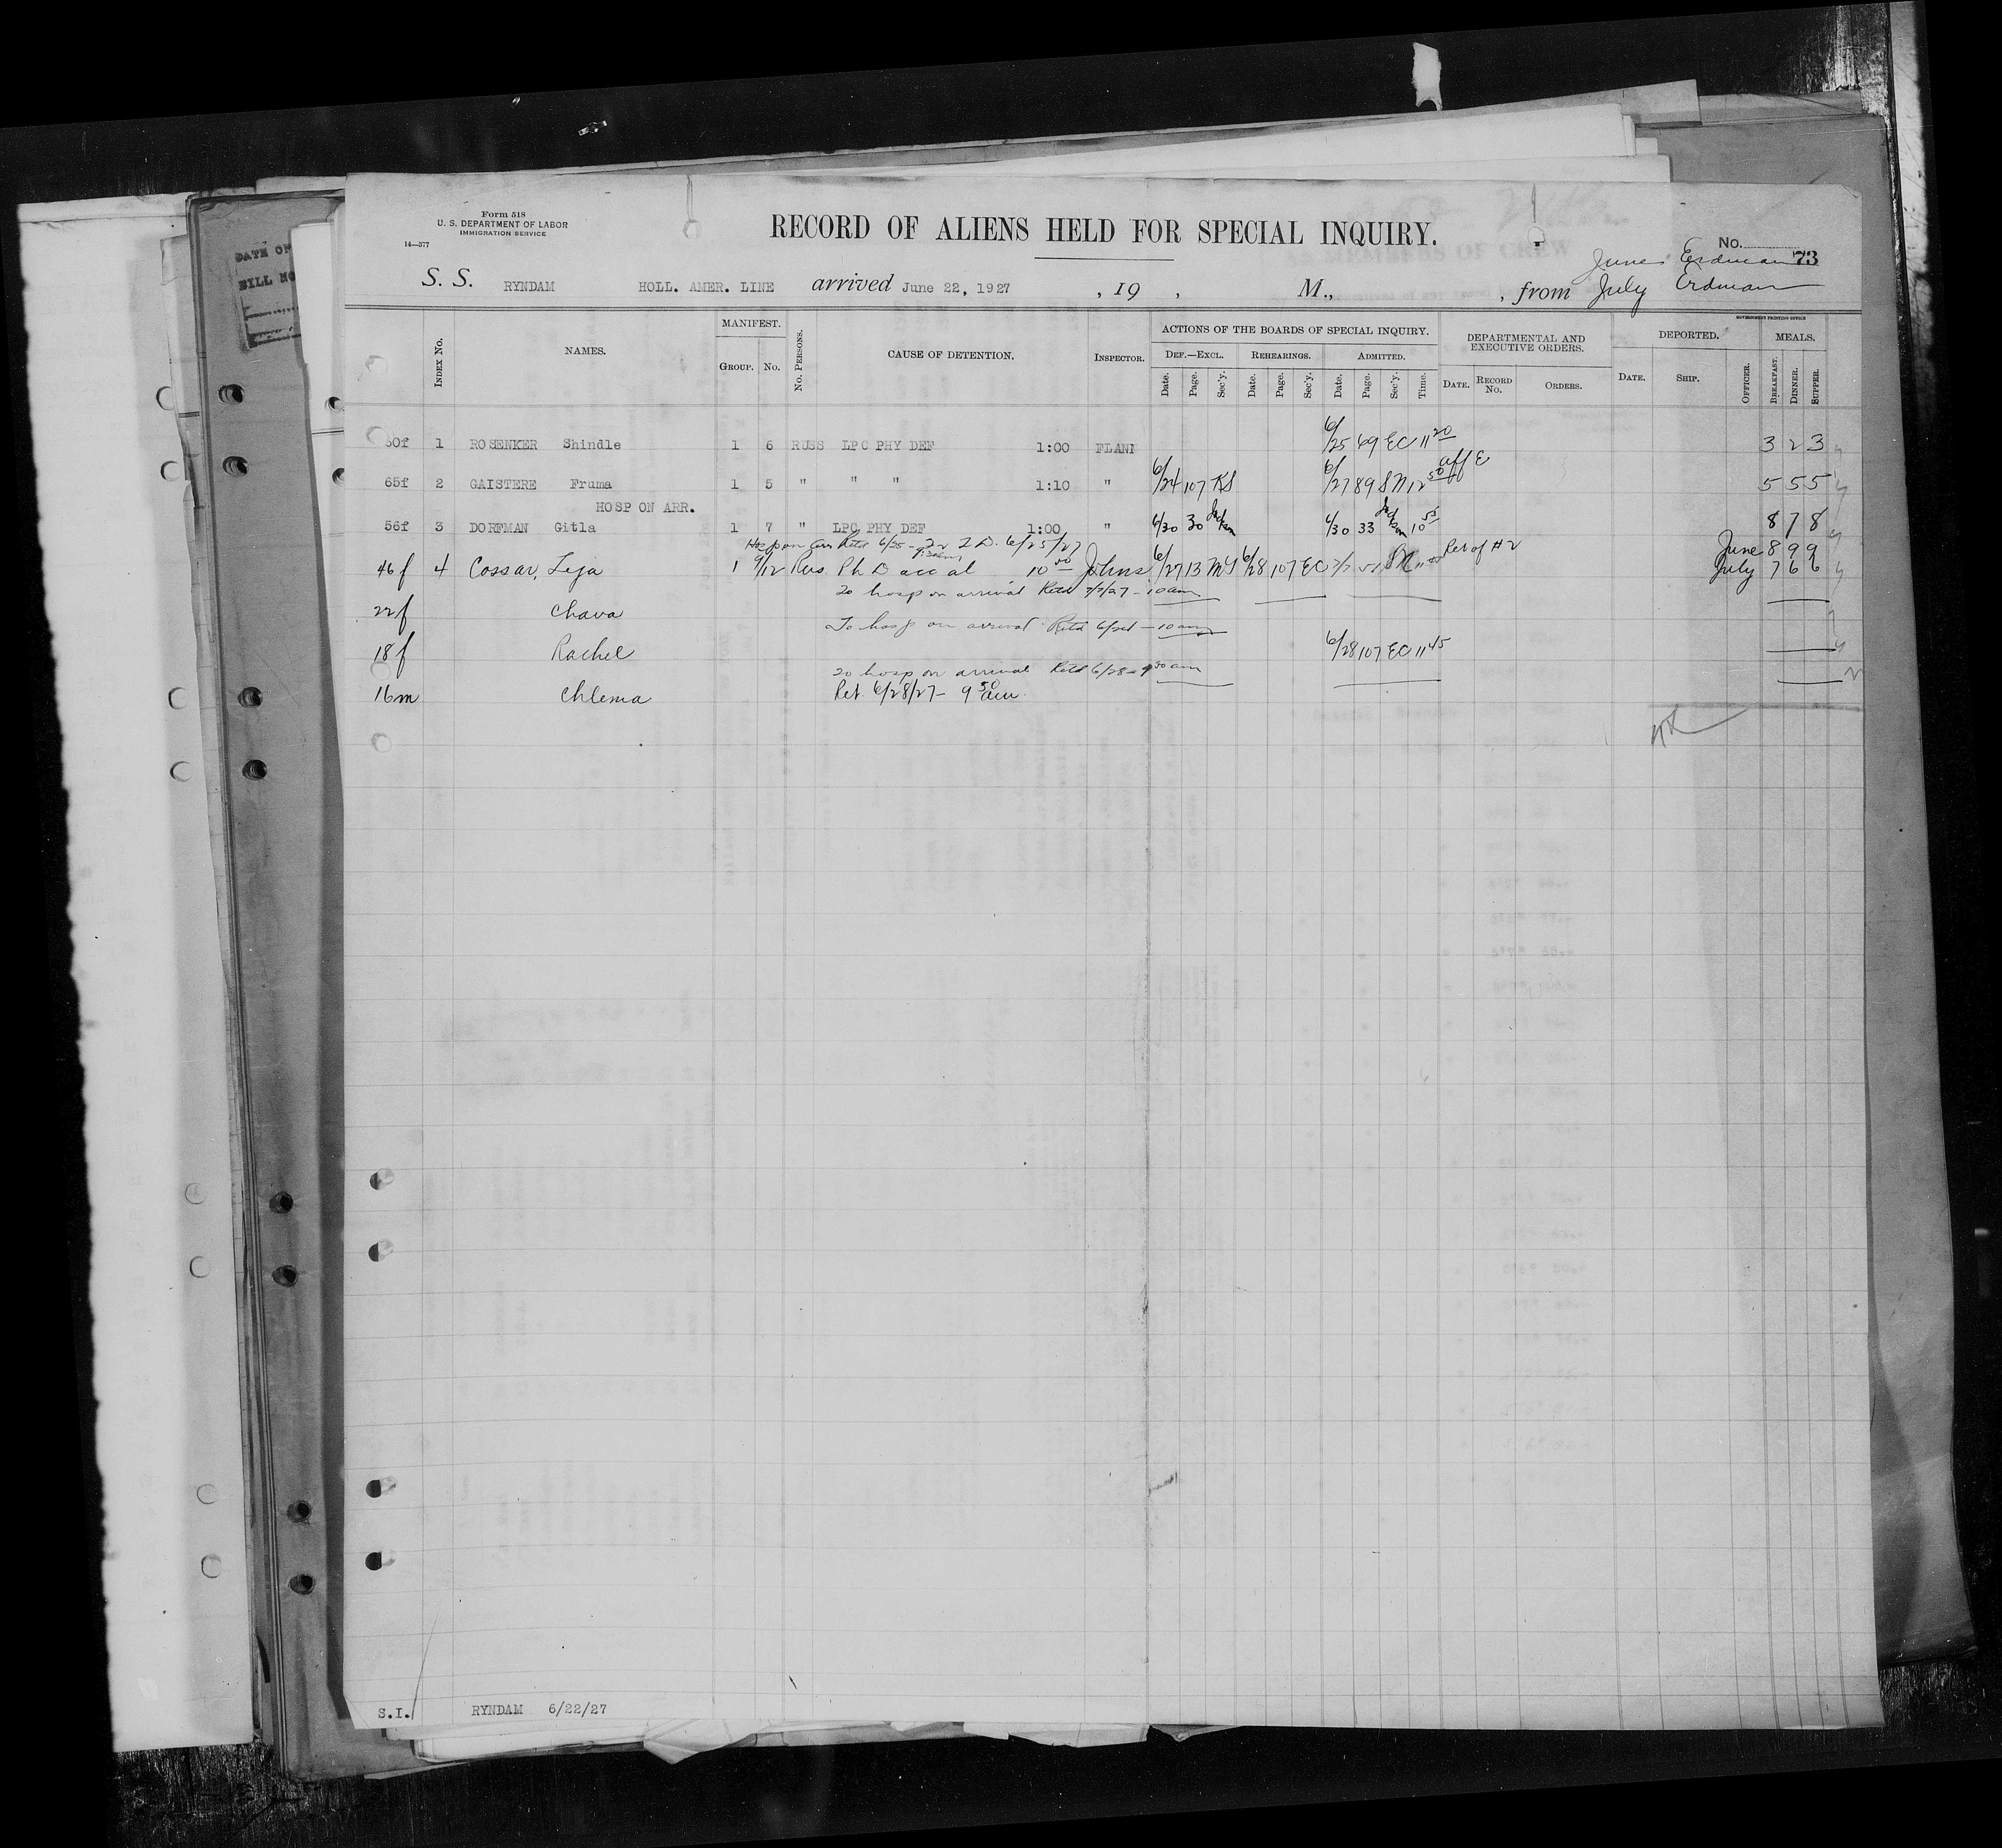 DATE OF
BILL NO
Form 518
U. S. DEPARTMENT OF LABOR
IMMIGRATION SERVICE
14—377
RECORD OF ALIENS HELD FOR SPECIAL INQUIRY.
No. 73
June Erdman
S. S. RYNDAM HOLL. AMER. LINE arrived June 22, 1927 , 19 , M., , from July Erdman
GOVERNMENT PRINTING OFFICE
INDEX No. NAMES. MANIFEST. GROUP. No. No. PERSONS. CAUSE OF DETENTION. INSPECTOR. ACTIONS OF THE BOARDS OF SPECIAL INQUIRY. DEPARTMENTAL AND EXECUTIVE ORDERS. DEPORTED. MEALS.
DEF.—EXCL. REHEARINGS. ADMITTED.
Date. Page. Sec'y. Date. Page. Sec'y. Date. Page. Sec'y. Time. DATE. RECORD No. ORDERS. DATE. SHIP. OFFICER. BREAKFAST. DINNER. SUPPER.
50f 1 ROSENKER Shindle 1 6 RUSS LPC PHY DEF 1:00 FLANN 6/25 69 EC 11 20 3 2 3
65f 2 GAISTERE Fruma 1 5 " " " 1:10 " 6/24 107 KS 6/27 89 SM 12 50 aff E 5 5 5
HOSP ON ARR.
56f 3 DORFMAN Gitla 1 7 " LPC PHY DEF 1:00 " 6/30 30 Jackson 6/30 33 Jackson 10 55 8 7 8
Hosp on arr Retd 6/25 6/25/27
June 8 9 9
46f 4 Cossar, Leja 1 9/12 Rus. Ph D acc al 10 50 Johns 6/27 13 MS 6/28 107 EC SM Rel of #2 July 7 6 6
To hosp on arrival Retd 7/7/27 - 10 am
22f Chava
To hosp on arrival Retd - 10 am
18f Rachel 6/28 107 EC 11 45
To hosp on arrival Retd 6/28 - 9 30 am
16m Chlema Ret. 6/28/27 - 9 50 am.
S.I. RYNDAM 6/22/27